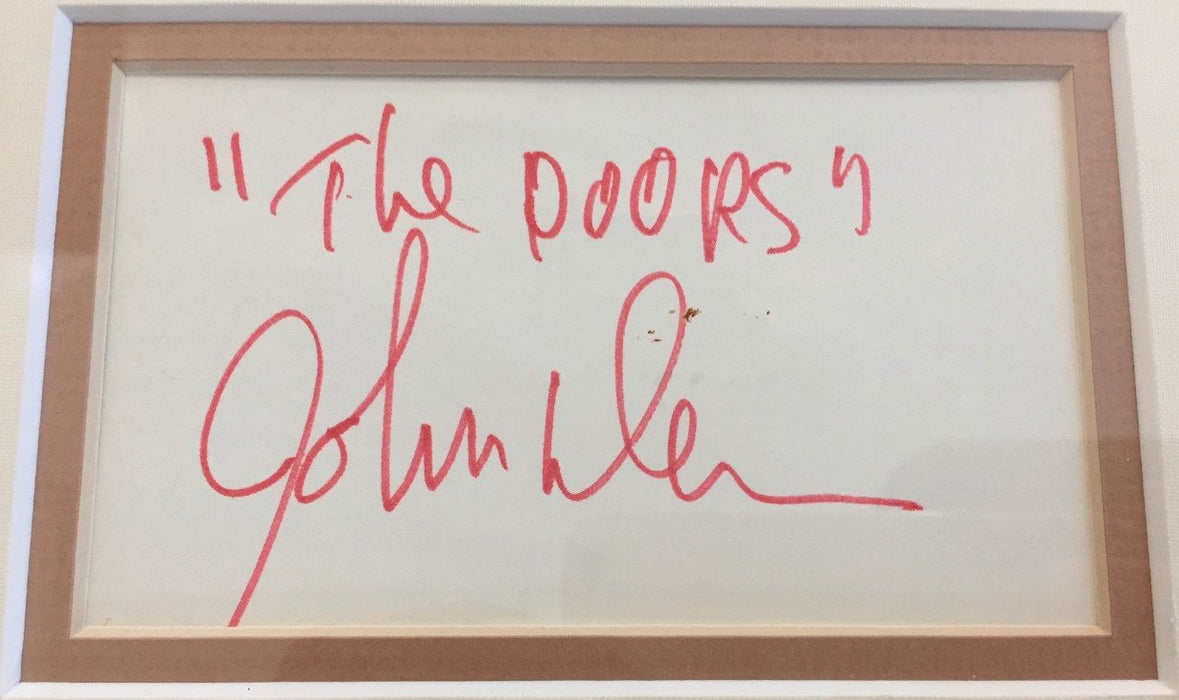 "The DOORS"
John